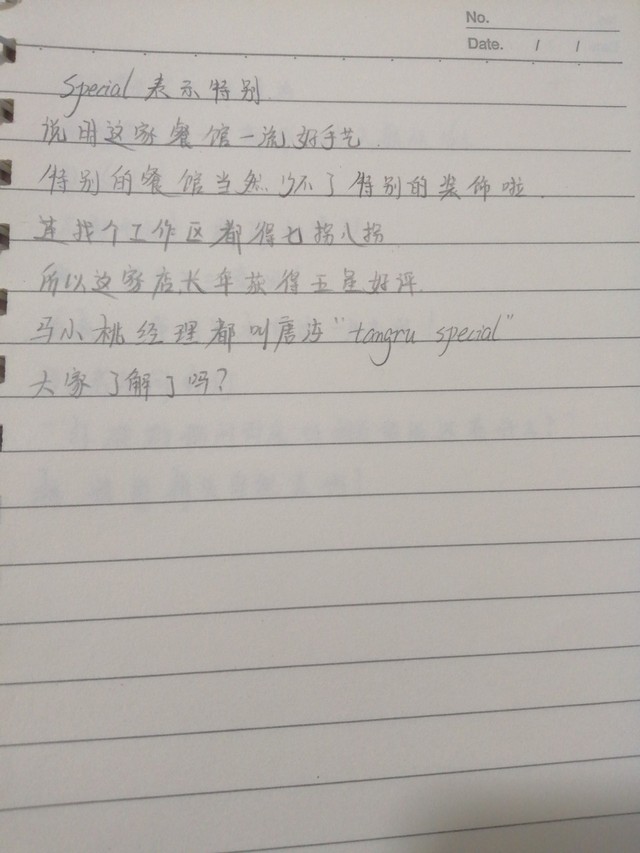 No.
Date. / /
Special 表示特别.
说明这家餐馆一流好手艺.
特别的餐馆当然少不了特别的装饰啦.
连找个工作区都得七拐八拐.
所以这家店长年获得五星好评.
马小桃经理都叫唐 "tangru special"
大家了解了吗?